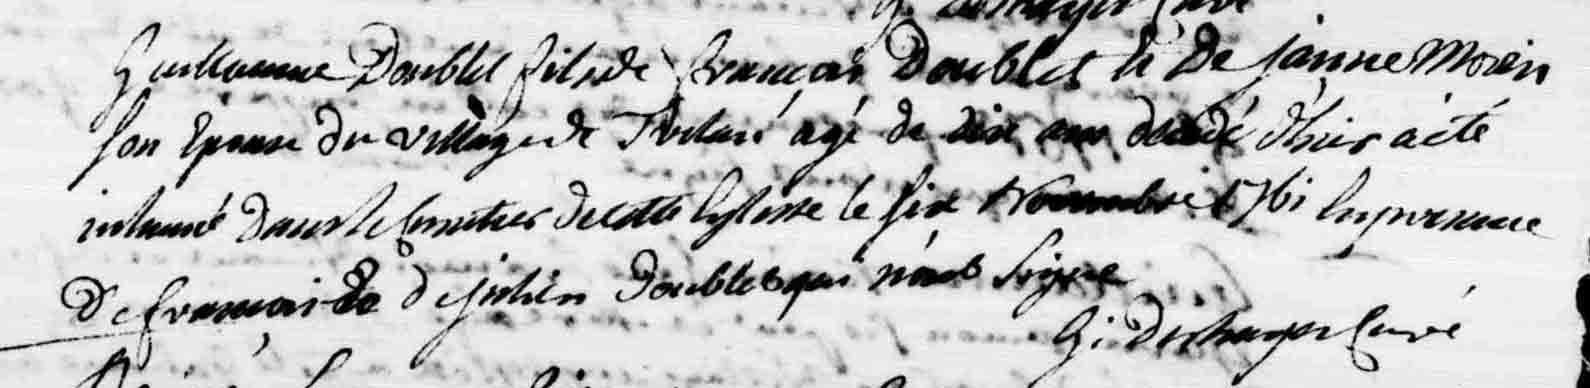 G. Deshayes Curé
Guillaume Doublet fils de françois Doublet et De janne Morin
son Epouse du village de agé de dix ans decedé d'hier a été
inhumé dans le Cimetier de cette Eglisse le six Novembre 1761 En presence
De françois & de julien Doublet qui n'ont signe
G. Deshayes Curé